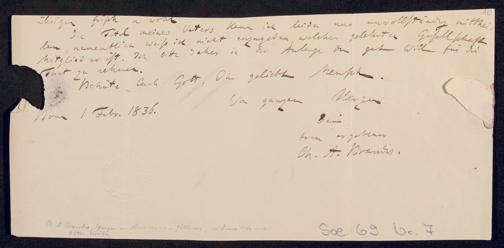 übrigen frisch u. wohl.
Die Titel meines Vaters kann ich leider nur unvollständig mitthei-
len, namentlich weiß ich nicht anzugeben, welcher gelehrten Gesellschaft
Mitglied er ist. Ich bitte daher in der Anlage den guten Willen für die
That zu nehmen.
Behüte Euch Gott, Du geliebter Mensch.
Von ganzem Herzen
Dein
treu ergebener
Ch. A. Brandis.
Bonn 1 Febr. 1836.
Soc 69 Nr. 7